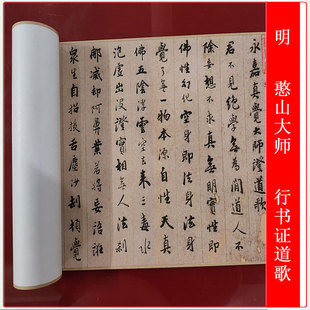 明 憨山大师 行书证道歌
永嘉真覺大師證道歌
君不見絕學無為閒道人不
除妄想不求真無明實性即
佛性幻化空身即法身法身
覺了無一物本源自性天真
佛五陰浮雲空去來三毒水
泡虛出沒證實相無人法剎
那滅却阿鼻業若將妄語誑
眾生自招拔舌塵沙劫頓覺